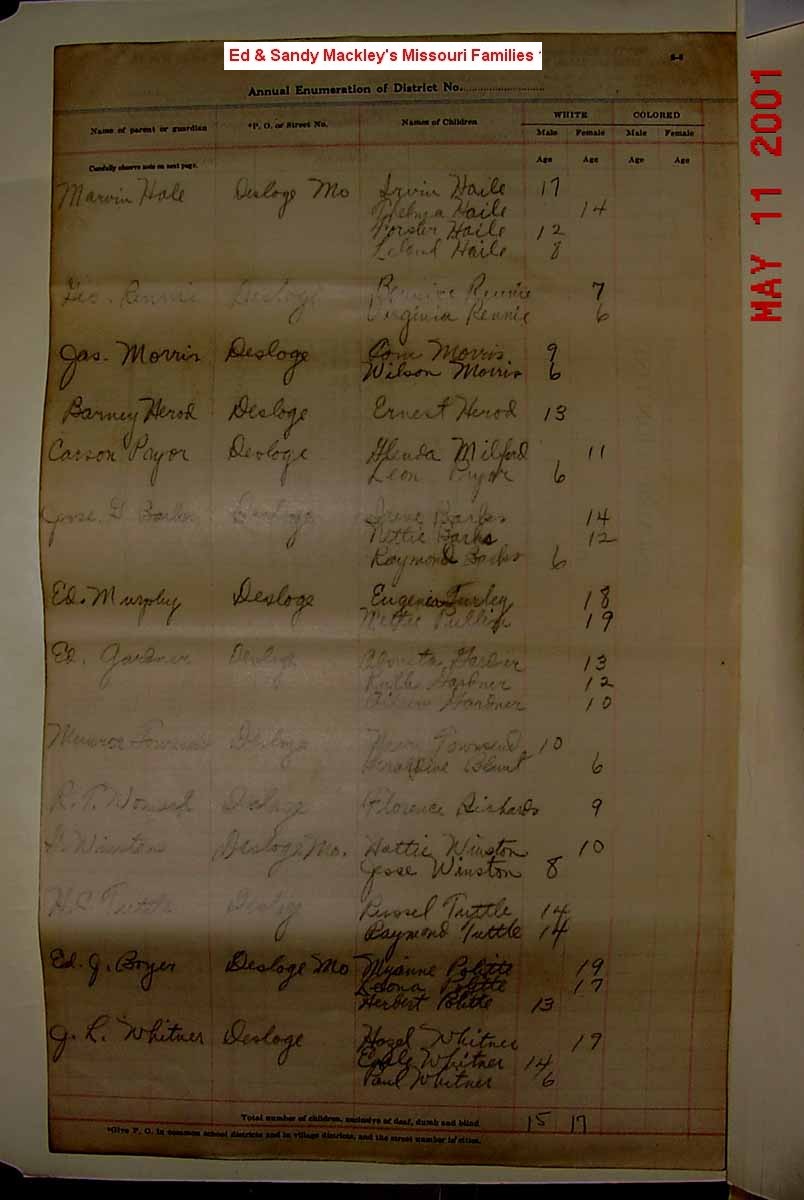 Ed & Sandy Mackley's Missouri Families
Annual Enumeration of District No.
Name of parent or guardian *P. O. or Street No. Names of Children WHITE COLORED
Male Female Male Female
Age Age Age Age
Carefully observe note on next page.
Marvin Hale Desloge Mo Irvin Haile 17
Thelma Haile 14
Forster Haile 12
Leland Haile 8
Geo. Rennie Desloge Bernice Rennie 7
Virginia Rennie 6
Jas. Morris Desloge Tom Morris 9
Wilson Morris 6
Barney Herod Desloge Ernest Herod 13
Carson Pryor Desloge Glenda Milford 11
Leon Pryor 6
Desloge Irene Barks 14
Nettie Barks 12
Raymond Barks 6
Ed. Murphy Desloge Eugenia Turley 18
Nettie 19
Ed. Gardner Desloge Gardner 13
Ruth Gardner 12
Gardner 10
Desloge Townsend 10
Geraldine 6
R. T. Desloge Florence Richards 9
Winston Desloge Mo. Hattie Winston 10
Jesse Winston 8
H. C. Tuttle Desloge Russel Tuttle 14
Raymond Tuttle 14
Ed. J. Boyer Desloge Mo Politte 19
Leona Politte 17
Herbert Politte 13
J. L. Whitner Desloge Hazel Whitner 17
Whitner 14
Paul Whitner 6
Total number of children, exclusive of deaf, dumb and blind 15 17
*Give P. O. in common school districts and in village districts, and the street number in cities.
MAY 11 2001